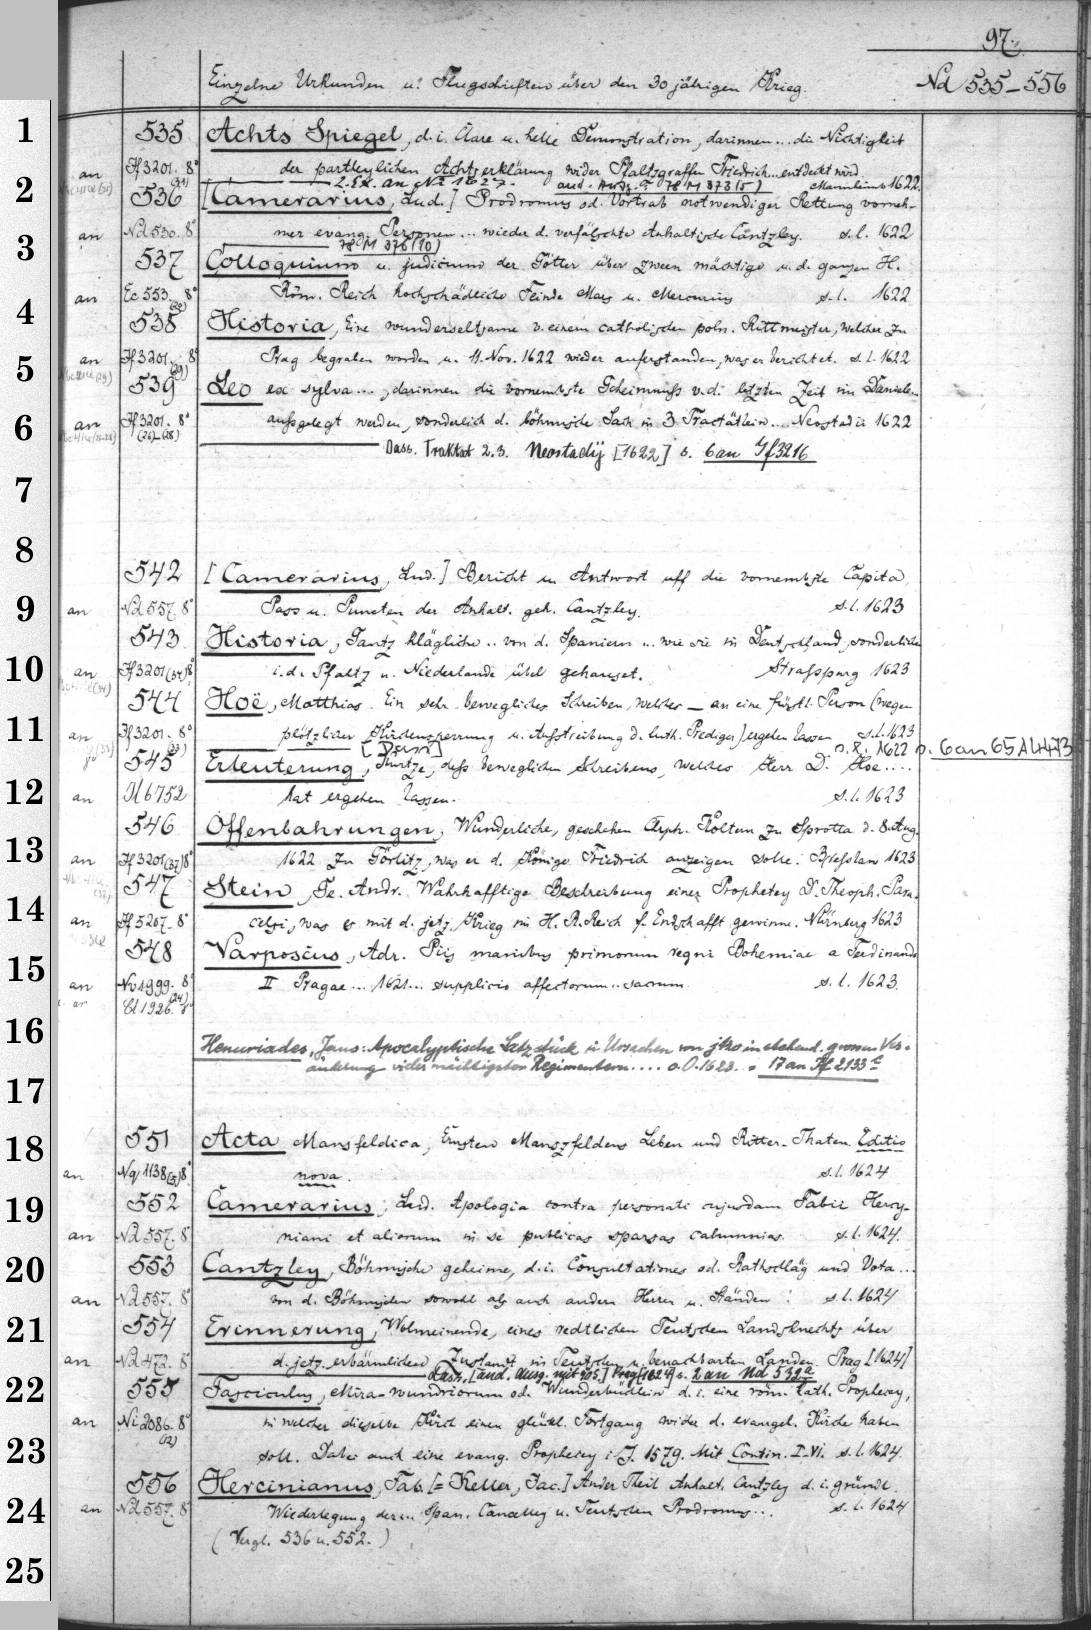 97.
Einzelne Urkunden u. Flugschriften über den 30 jährigen Krieg.
Nd 535–556
1
535 Achts Spiegel, d. i. Clare u. helle Demonstration, darinnen... die Nichtigkeit
an Jf 3201. 8° (31) der partheylichen Achtserklärung wider Pfaltzgraffen Friedrich... entdeckt wird.
2. Ex. an Nr 1627. and. Ausg. 78 M 373(5) Mannheim 1622
2
536 [Camerarius, Lud.] Prodromus od. Vortrab notwendiger Rettung vorneh-
an Nd 530. 8° mer evang. Personen... wieder d. verfälschte Anhaltische Cäntzley. s. l. 1622
78 M 376 (10)
3
537 Colloquium u. judicium der Götter über zween mächtige u. d. ganzen H.
an Ec 553. 8° (20) Röm. Reich hochschädliche Feinde Mars u. Mercurius s. l. 1622
4
538 Historia, Eine wunderseltzame v. einem catholischen poln. Rittmeister, welcher zu
an Jf 3201. 8° (29) Prag begraben worden u. 11. Nov. 1622 wieder auferstanden, was er berichtet. s. l. 1622
5
539 Leo ex sylva..., darinnen die vornembste Geheimnuss v. d. letzten Zeit im Daniele
an Jf 3201. 8° (26)-(28) aussgelegt werden, sonderlich d. böhmische Sach in 3 Tractätlein.... Neostadii 1622
6
Dass. Traktat 2. 3. Neostadij [1622] s. 6 an Jf 3216
7
8
542 [Camerarius, Lud.] Bericht u. Antwort uff die vornembste Capita,
9
an Nd 557. 8° Pass u. Puncten der Anhalt. geh. Cantzley. s. l. 1623
543 Historia, Gantz klägliche.. von d. Spaniern... wie sie in Deutschland, sonderlichen
10
an Jf 3201 (34) 8° i. d. Pfaltz u. Niederlande übel gehauset. Strassparg 1623
544 Hoë, Matthias. Ein sehr bewegliches Schreiben, welches — an eine fürstl. Person (wegen
11
an Jf 3201. 8° (33) plötzlicher Kirchensperrung u. Aufstreibung d. luth. Prediger) ergehen lassen s. l. 1623
s. l. 1622 s. 6 an 65 A 4473
545 Erleuterung, Kurtze, dess beweglichen Schreibens, welches Herr D. Hoe....
12
an M 6752 hat ergehen lassen. s. l. 1623
546 Offenbahrungen, Wunderliche, geschehen Chph. Koltern zu Sprotta d. 8. Aug.
13
an Jf 3201 (37) 8° 1622 zu Görlitz, was er d. Könige Friedrich anzeigen solle. Bresslaw 1623
547 Stein, Ge. Andr. Wahrhafftige Beschreibung einer Prophetey D. Theoph. Para-
14
an Jf 5207. 8° celsi, was es mit d. jetz. Krieg im H. R. Reich f. Endschafft gewinne. Nürnberg 1623
548 Varposcius, Adr. Piis manibus primorum regni Bohemiae a Ferdinando
15
an Nv 1999. 8° II Pragae... 1621... supplicio affectorum.. sacrum. s. l. 1623.
an Cl 1926. (24) 8°
16
Henuriades, Janus: Apocalyptische Satzstück u. Ursachen von jtzo instehend. grossen Ver-
änderung vieler mächtigsten Regimentern.... o. O. 1623. = 17 an Jf 2133 a
17
18
551 Acta Mansfeldica, Ernsten Manszfeldens Leben und Ritter-Thaten. Editio
an Nq 1138 (5) 8° nova. s. l. 1624
19
552 Camerarius, Lud. Apologia contra personati cujusdam Fabii Hercy-
an Nd 557. 8° niani et aliorum in se publicas sparsas calumnias. s. l. 1624.
20
553 Cantzley, Böhmische geheime, d. i. Consultationes od. Rathschläg und Vota...
an Nd 557. 8° von d. Böhmischen sowohl als auch andern Herren u. Ständen: s. l. 1624
21
554 Erinnerung, Wolmeinende, eines redtlichen Teutschen Landsknechts über
an Nd 472. 8° d. jetz. erbärmlichen Zustandt in Teutschen u. benachbarten Landen. Prag [1624]
Dass. [and. Ausg. mit 205.] Prag [1624] s. 2 an Nd 532 a
22
555 Fasciculus, Mira-wundriorum od. Wunderbüchlein d. i. eine röm. kath. Prophecey,
an Ni 2086. 8° (12) in welcher dieselbe Kirch einen glückl. Fortgang wider d. evangel. Kirche haben
23
soll. Dabei auch eine evang. Prophecey i. J. 1579. Mit Contin. I–VI. s. l. 1624.
556 Hercinianus, Fab. [= Keller, Jac.] Ander Theil Anhalt. Cantzley d. i. gründl.
24
an Nd 557. 8° Wiederlegung der... Span. Cancelley u. Teutschen Prodromus... s. l. 1624
(Vergl. 536 u. 552.)
25